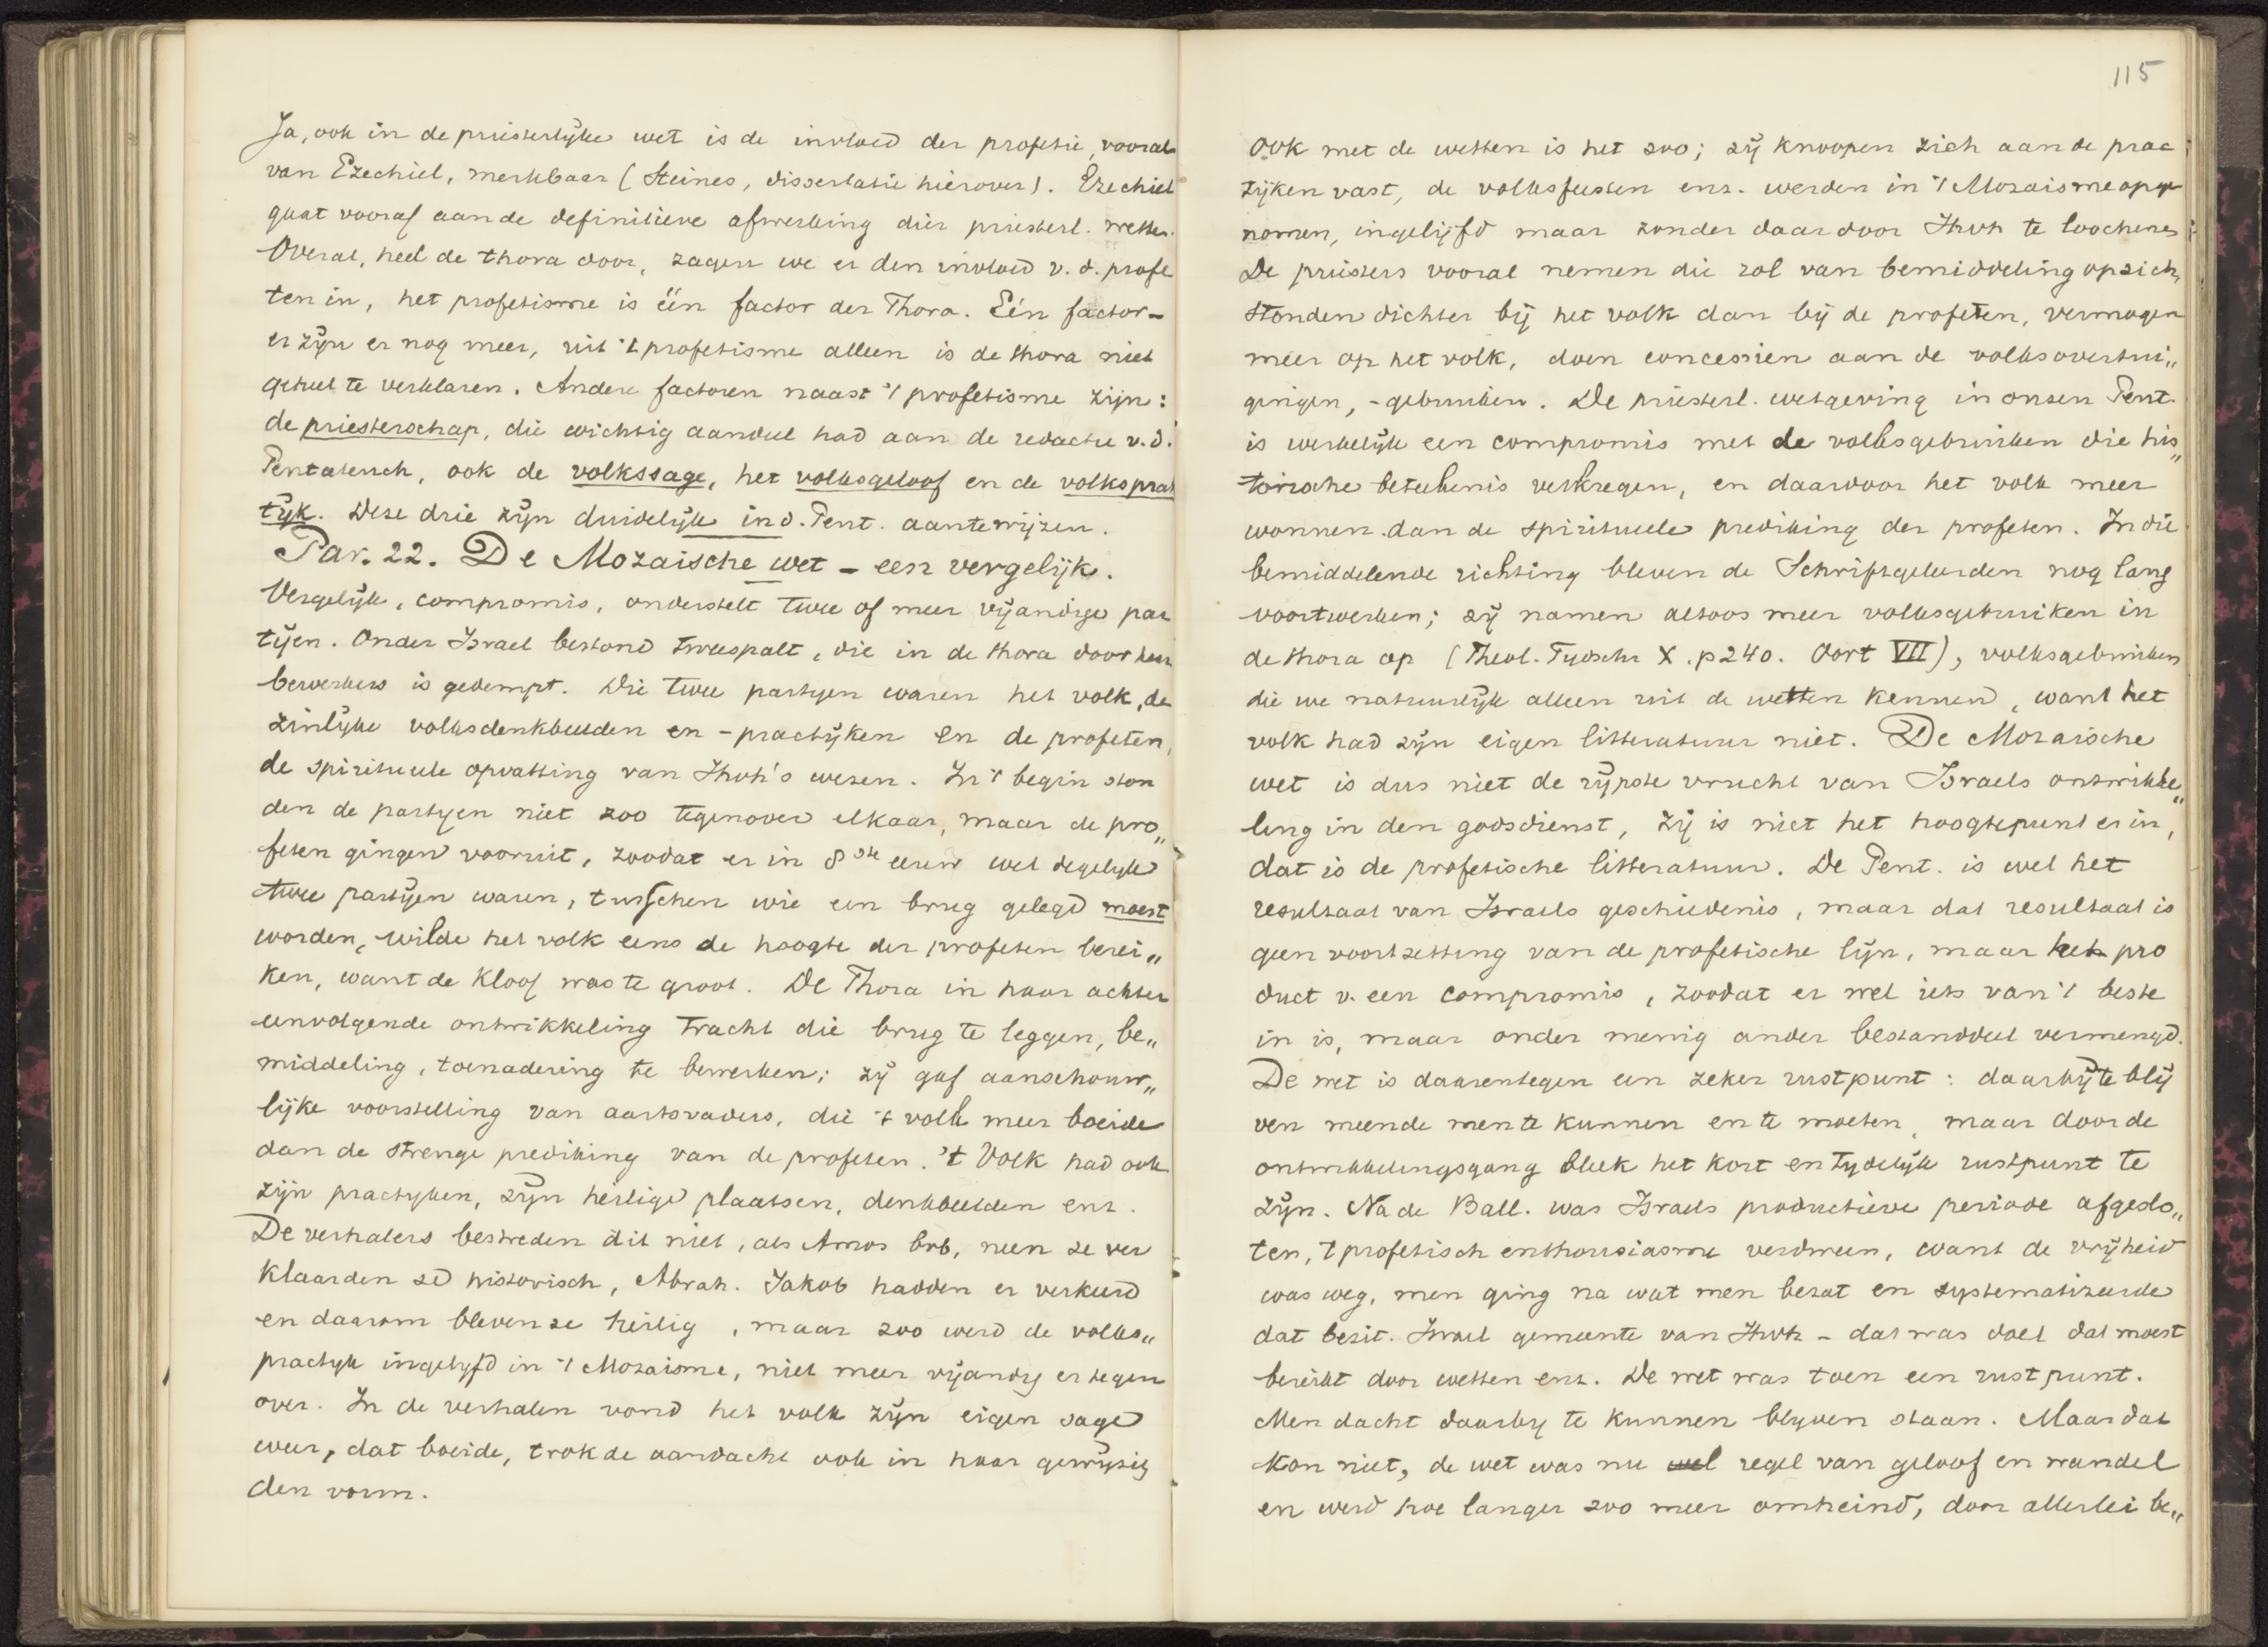 Ja, ook in de priesterlijke wet is de invloed der profetie, vooral
van Ezechiel, merkbaar (Steines, dissertatie hierover). Ezechiel
gaat vooraf aan de definitieve afwerking dier priesterl. wetten.
Overal, heel de thora door, zagen we er den invloed v. d. profe
ten in, het profetisme is één factor der Thora. Eén factor –
er zijn er nog meer, uit 't profetisme alleen is de thora niet
geheel te verklaren. Andere factoren naast 't profetisme zijn:
de priesterschap, die wichtig aandeel had aan de redactie v. d.
Pentateuch, ook de volkssage, het volksgeloof en de volksprak
tijk. Deze drie zijn duidelijk in d. Pent. aantewijzen.
Par. 22. De Mozaische wet – een vergelijk.
Vergelijk, compromis, onderstelt twee of meer vijandige par
tijen. Onder Israel bestond tweespalt, die in de thora door hen
bewerkers is gedempt. Die twee partijen waren het volk, de
zinlijke volksdenkbeelden en -practijken en de profeten,
de spiritueele opvatting van Jhvh's wezen. In 't begin ston
den de partijen niet zoo tegenover elkaar, maar de pro„
feten gingen vooruit, zoodat er in 8ste eeuw wel degelijk
twee partijen waren, tusschen wie een brug gelegd moest
worden, wilde het volk eens de hoogte der profeten berei„
ken, want de kloof was te groot. De Thora in haar achter
eenvolgende ontwikkeling tracht die brug te leggen, be„
middeling, toenadering te bewerken; zij gaf aanschouw„
lijke voorstelling van aartsvaders, die 't volk meer boeide
dan de strenge prediking van de profeten. 't Volk had ook
zijn practijken, zijn heilige plaatsen, denkbeelden enz.
De verhalers bestreden dit niet, als Amos bvb, neen ze ver
klaarden ze historisch, Abrah. Jakob hadden er verkeerd
en daarom bleven ze heilig, maar zoo werd de volks„
practijk ingelijfd in 't Mozaisme, niet meer vijandig er tegen
over. In de verhalen vond het volk zijn eigen sage
weer, dat boeide, trok de aandacht ook in haar gewijzig
den vorm.
115
Ook met de wetten is het zoo; zij knoopen zich aan de prac
tijken vast, de volksfeesten enz. werden in 't Mozaisme opge
nomen, ingelijfd maar zonder daardoor Jhvh te loochenen
De priesters vooral nemen die rol van bemiddeling op zich,
stonden dichter bij het volk dan bij de profeten, vermogen
meer op het volk, doen concessien aan de volksovertui„
gingen, -gebruiken. De priesterl. wetgeving in onzen Pent.
is werkelijk een compromis met de volksgebruiken die his„
torische beteekenis verkregen, en daardoor het volk meer
wonnen dan de spiritueele prediking der profeten. In die
bemiddelende richting bleven de Schriftgeleerden nog lang
voortwerken; zij namen altoos meer volksgebruiken in
de thora op (Theol. Tijdschr X. p 240. Oort VII), volksgebruiken
die we natuurlijk alleen uit de wetten kennen, want het
volk had zijn eigen litteratuur niet. De Mozaische
wet is dus niet de rijpste vrucht van Israels ontwikke„
ling in den godsdienst, zij is niet het hoogtepunt er in,
dat is de profetische litteratuur. De Pent. is wel het
resultaat van Israels geschiedenis, maar dat resultaat is
geen voortzetting van de profetische lijn, maar het pro
duct v. een compromis, zoodat er wel iets van 't beste
in is, maar onder menig ander bestanddeel vermengd.
De wet is daarentegen een zeker rustpunt: daarbij te blij
ven meende men te kunnen en te moeten, maar door de
ontwikkelingsgang bleek het kort en tijdelijk rustpunt te
zijn. Na de Ball. was Israels productieve periode afgeslo„
ten, 't profetisch enthousiasme verdween, want de vrijheid
was weg, men ging na wat men bezat en systematizeerde
dat bezit. Israel gemeente van Jhvh – dat was doel dat moest
bereikt door wetten enz. De wet was toen een rustpunt.
Men dacht daarbij te kunnen blijven staan. Maar dat
kon niet, de wet was nu wel regel van geloof en wandel
en werd hoe langer zoo meer omheind, door allerlei be„